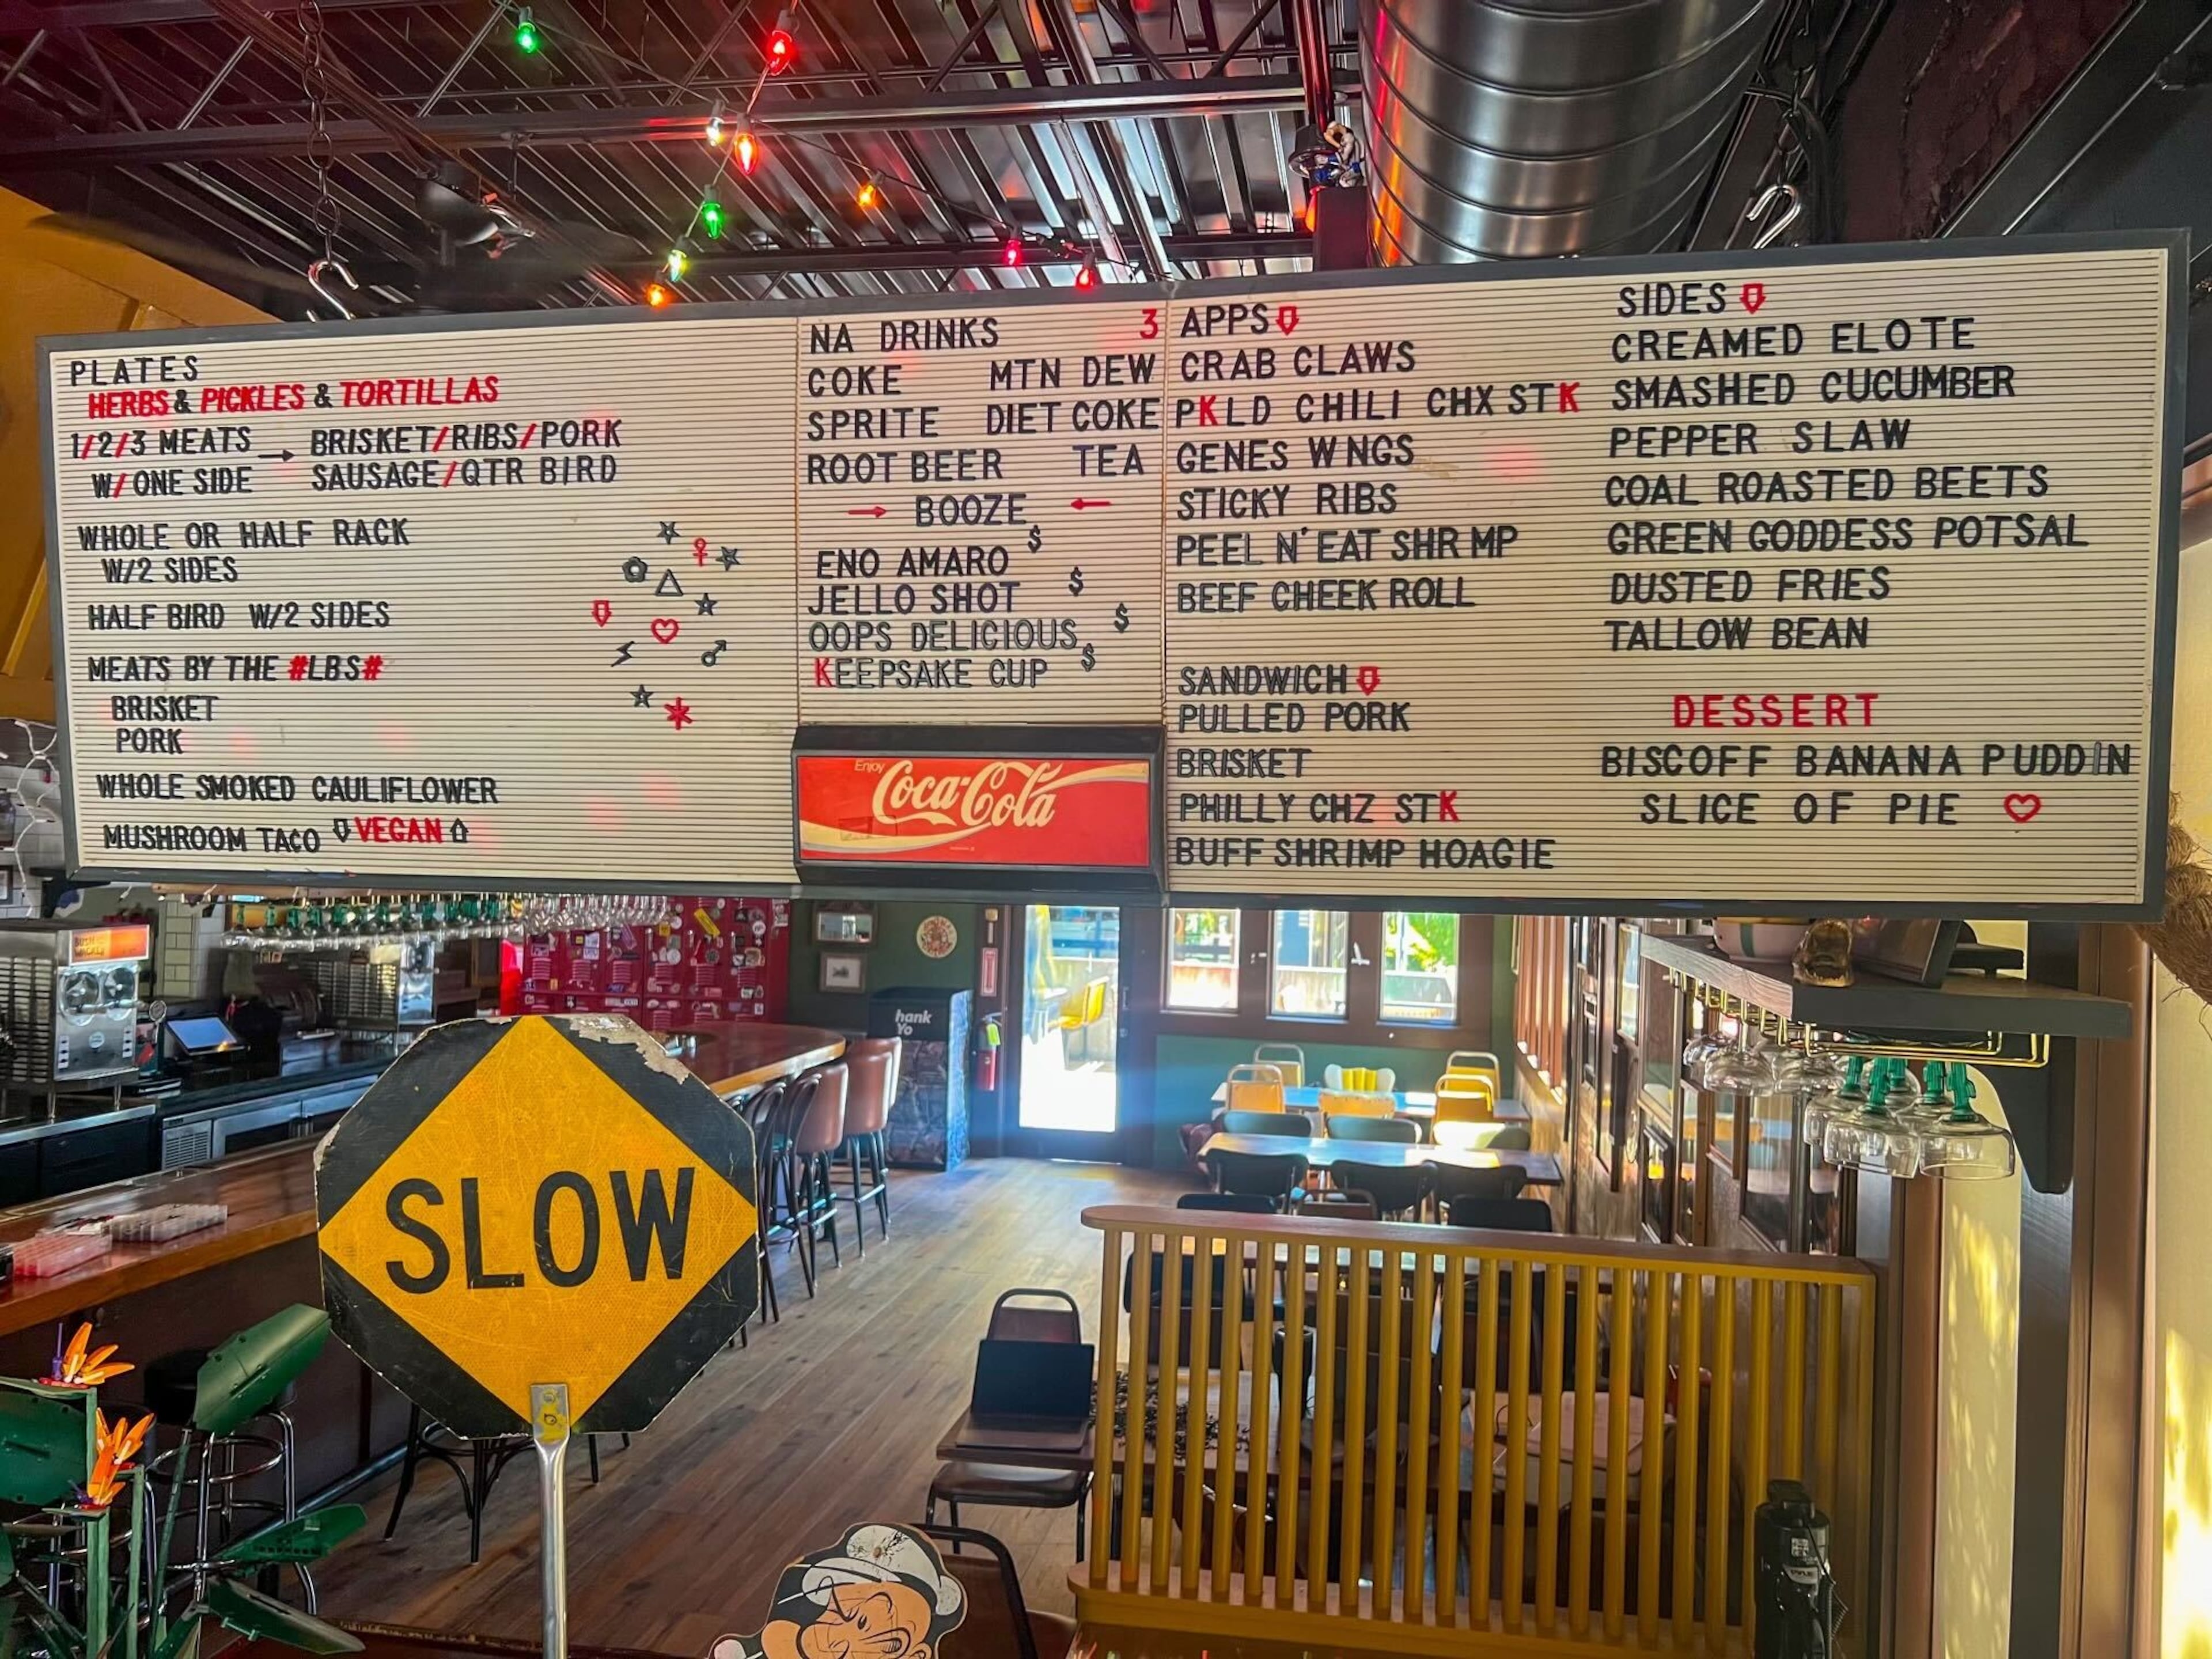 PLATES
HERBS & PICKLES & TORTILLAS
1/2/3 MEATS → BRISKET/RIBS/PORK
W/ONE SIDE SAUSAGE/QTR BIRD
WHOLE OR HALF RACK
W/2 SIDES
HALF BIRD W/2 SIDES
MEATS BY THE #LBS#
BRISKET
PORK
WHOLE SMOKED CAULIFLOWER
MUSHROOM TACO ⇩ VEGAN ⇧
NA DRINKS 3
COKE MTN DEW
SPRITE DIET COKE
ROOT BEER TEA
→ BOOZE ←
ENO AMARO $
JELLO SHOT $
OOPS DELICIOUS $
KEEPSAKE CUP $
Enjoy
Coca-Cola
APPS ⇩
CRAB CLAWS
PKLD CHILI CHX STK
GENES WNGS
STICKY RIBS
PEEL N' EAT SHR MP
BEEF CHEEK ROLL
SANDWICH ⇩
PULLED PORK
BRISKET
PHILLY CHZ STK
BUFF SHRIMP HOAGIE
SIDES ⇩
CREAMED ELOTE
SMASHED CUCUMBER
PEPPER SLAW
COAL ROASTED BEETS
GREEN GODDESS POTSAL
DUSTED FRIES
TALLOW BEAN
DESSERT
BISCOFF BANANA PUDDIN
SLICE OF PIE ♡
hank
Yo
SLOW